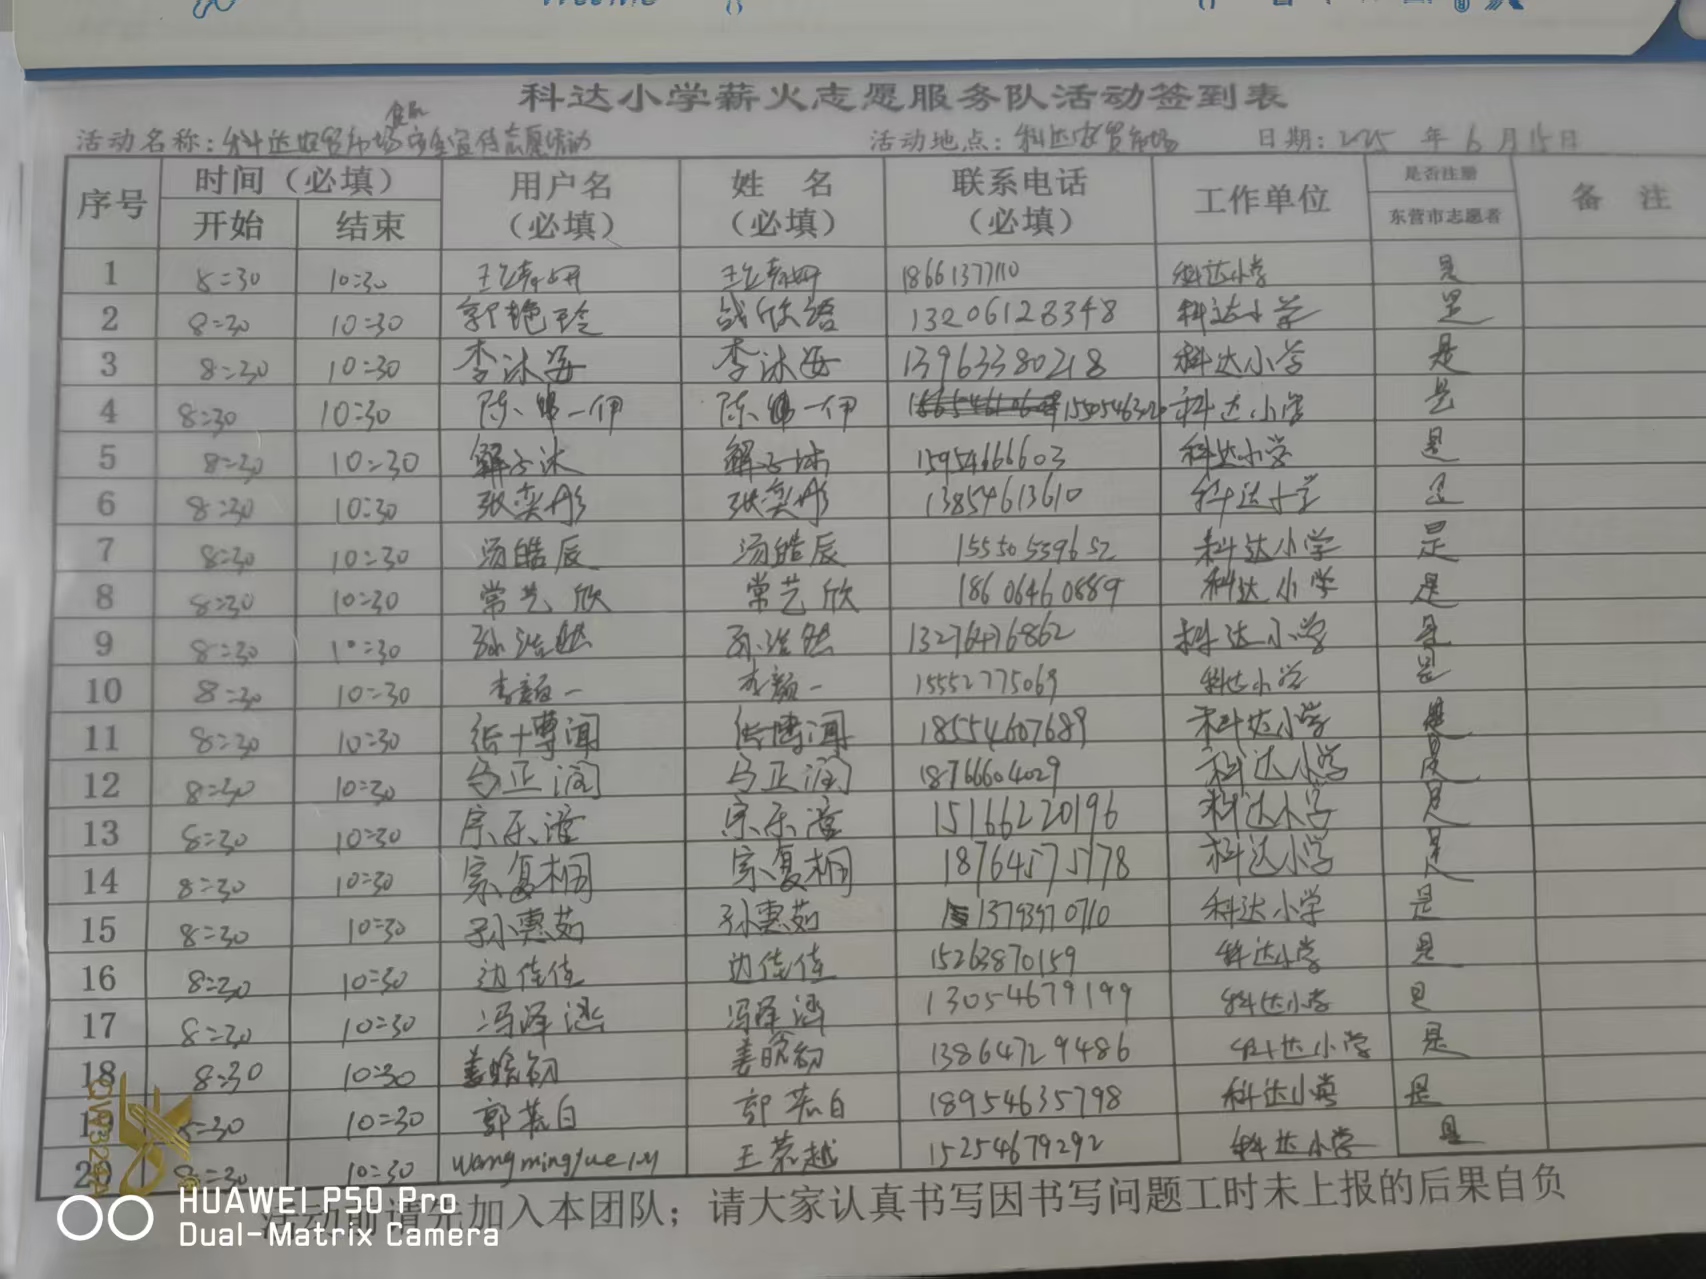 科达小学薪火志愿服务队活动签到表
食品
活动名称：科达农贸市场安全宣传志愿活动 活动地点：科达农贸市场 日期：2025 年 6 月 15 日
序号 时间（必填） 用户名 姓 名 联系电话 工作单位 是否注册 备 注
开始 结束 （必填） （必填） （必填） 东营市志愿者
1 8:30 10:30 18661377110 科达小学 是
2 8:30 10:30 郭艳玲 战欣语 13206128348 科达小学 是
3 8:30 10:30 李沐安 李沐安 13963380218 科达小学 是
4 8:30 10:30 陈 一伊 陈 一伊 科达小学 是
5 8:30 10:30 解子沐 解子沐 15954666603 科达小学 是
6 8:30 10:30 张奕彤 张奕彤 13854613610 科达小学 是
7 8:30 10:30 汤皓辰 汤皓辰 15550539652 科达小学 是
8 8:30 10:30 常艺欣 常艺欣 18606460889 科达小学 是
9 8:30 10:30 孙浩然 孙浩然 13276476862 科达小学 是
10 8:30 10:30 李颜一 李颜一 15552775069 科达小学 是
11 8:30 10:30 张博闻 张博闻 18554607689 科达小学 是
12 8:30 10:30 马正润 马正润 18766604029 科达小学 是
13 8:30 10:30 宗乐滢 宗乐滢 15166220196 科达小学 是
14 8:30 10:30 宗复桐 宗复桐 18764575178 科达小学 是
15 8:30 10:30 孙惠茹 孙惠茹 13793970710 科达小学 是
16 8:30 10:30 边佳佳 边佳佳 15263870159 科达小学 是
17 8:30 10:30 冯泽涵 冯泽涵 13054679199 科达小学 是
18 8:30 10:30 姜皖初 姜皖初 13864729486 科达小学 是
19 8:30 10:30 郭慕白 郭慕白 18954635798 科达小学 是
20 8:30 10:30 王慕越 15254679292 科达小学 是
活动前请先加入本团队；请大家认真书写因书写问题工时未上报的后果自负
HUAWEI P50 Pro
Dual-Matrix Camera